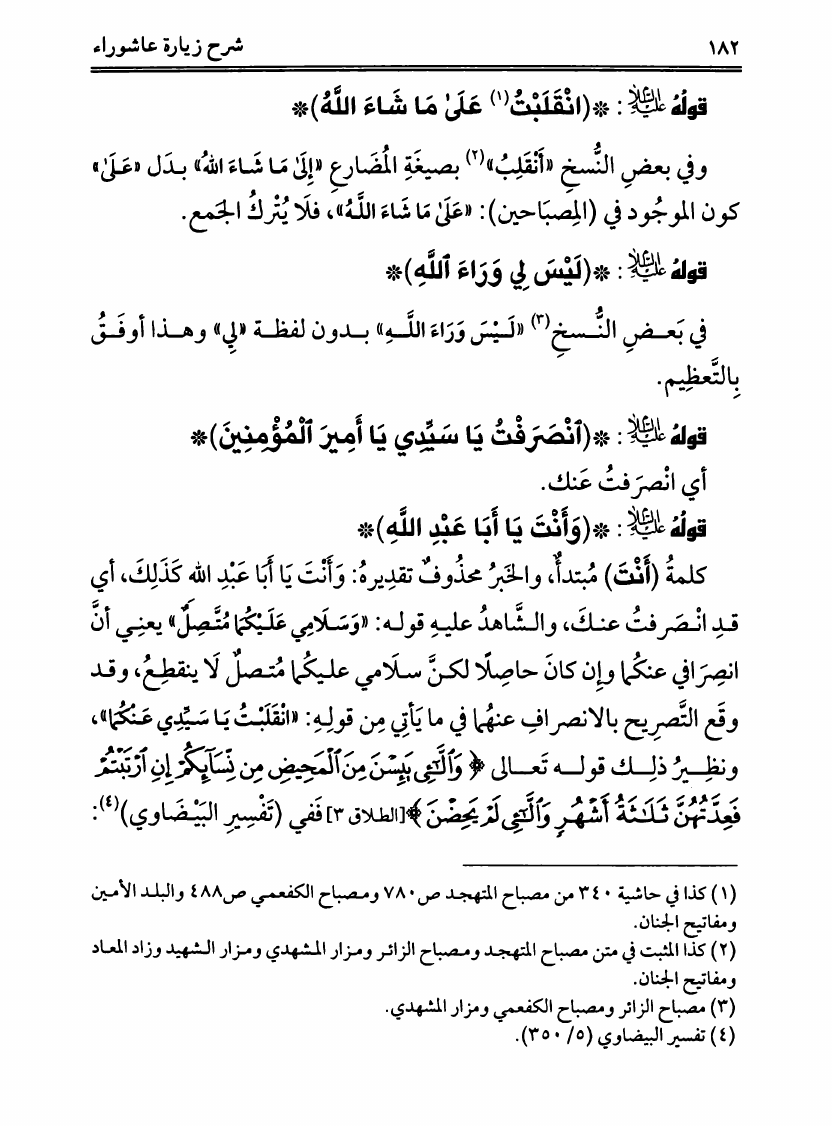 ١٨٢ شرح زيارة عاشوراء
قولُهُ عليه السلام: *(انْقَلَبْتُ(١) عَلَىٰ مَا شَاءَ اللَّهُ)*
وفي بعضِ النُّسخِ «أَنْقَلِبُ»(٢) بصيغَةِ المُضَارعِ «إِلَىٰ مَا شَاءَ اللهُ» بدَل «عَلَىٰ»
كون الموجُود في (المِصبَاحين): «عَلَىٰ مَا شَاءَ اللَّهُ»، فلَا يُتْركُ الجَمع.
قولهُ عليه السلام: *(لَيْسَ لِي وَرَاءَ ٱللَّهِ)*
في بَعـضِ النُّـسخِ(٣) «لَـيْسَ وَرَاءَ اللَّــهِ» بـدون لفظـة «لِي» وهـذا أوفَـقُ
بِالتَّعظِيم.
قولهُ عليه السلام: *(ٱنْصَرَفْتُ يَا سَيِّدِي يَا أَمِيرَ ٱلْمُؤْمِنِينَ)*
أي انْصرَفتُ عَنك.
قولُهُ عليه السلام: *(وَأَنْتَ يَا أَبَا عَبْدِ اللَّهِ)*
كلمةُ (أَنْتَ) مُبتدأٌ، والخبرُ محذُوفٌ تقدِيرهُ: وَأَنْتَ يَا أَبَا عَبْدِ الله كَذَلِكَ، أي
قدِ انْـصَرفتُ عنـكَ، والـشَّاهدُ عليـهِ قولـه: «وَسَـلَامِي عَلَـيْكُمَا مُتَّـصِلٌ» يعنِـي أنَّ
انصِرَافي عنكُما وإن كانَ حاصِلًا لكـنَّ سلَامي عليكُما مُتـصلٌ لَا ينقطِـعُ، وقـد
وقَع التَّصريح بالانصرافِ عنهُما في ما يَأتي مِن قولِهِ: «انْقَلَبْتُ يَا سَيِّدِي عَنْكُمَا»،
ونظِـيرُ ذلِـك قولـه تَعـالى ﴿ وَٱلَّٰٓـِٔى يَئِسْنَ مِنَ ٱلْمَحِيضِ مِن نِّسَآئِكُمْ إِنِ ٱرْتَبْتُمْ
فَعِدَّتُهُنَّ ثَلَٰثَةُ أَشْهُرٍ وَٱلَّٰٓـِٔى لَمْ يَحِضْنَ ﴾[الطلاق ٣] ففي (تَفْسِيرِ البَيْضَاوي)(٤):
(١) كذا في حاشية ٣٤٠ من مصباح المتهجد ص٧٨٠ ومصباح الكفعمي ص٤٨٨ والبلد الأمين
ومفاتيح الجنان.
(٢) كذا المثبت في متن مصباح المتهجد ومصباح الزائر ومزار المشهدي ومزار الشهيد وزاد المعاد
ومفاتيح الجنان.
(٣) مصباح الزائر ومصباح الكفعمي ومزار المشهدي.
(٤) تفسير البيضاوي (٥/ ٣٥٠).